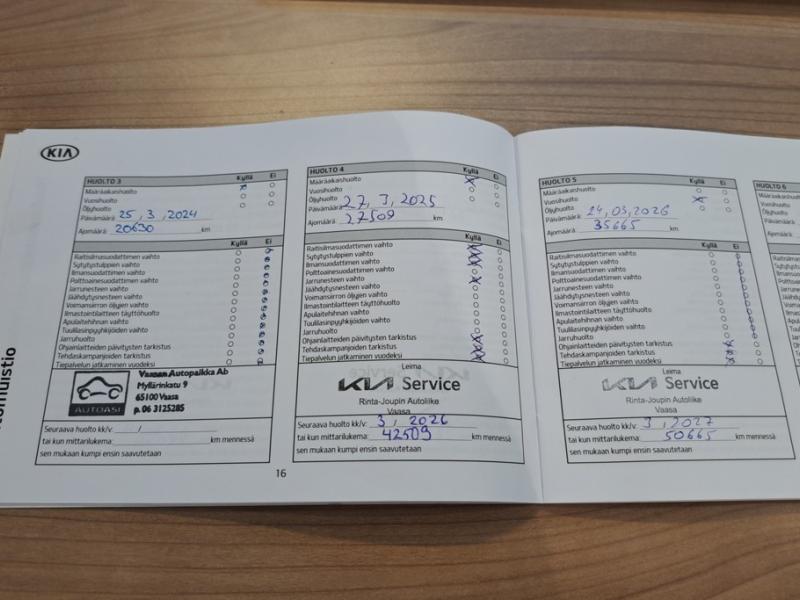 KIA
HUOLTO 3 Kyllä Ei
Määräaikaishuolto
Vuosihuolto
Öljyhuolto
Päivämäärä: 25, 3, 2024
Ajomäärä: 20630 km
Kyllä Ei
Raitisilmasuodattimen vaihto
Sytytystulppien vaihto
Ilmansuodattimen vaihto
Polttoainesuodattimen vaihto
Jarrunesteen vaihto
Jäähdytysnesteen vaihto
Voimansiirron öljyjen vaihto
Ilmastointilaitteen täyttöhuolto
Apulaitehihnan vaihto
Tuulilasinpyyhkijöiden vaihto
Jarruhuolto
Ohjainlaitteiden päivitysten tarkistus
Tehdaskampanjoiden tarkistus
Tiepalvelun jatkaminen vuodeksi
Vaasan Autopaikka Ab
Myllärinkatu 9
65100 Vaasa
p. 06 3125285
AUTOASI
Seuraava huolto kk/v: /
tai kun mittarilukema: km mennessä
sen mukaan kumpi ensin saavutetaan
16
HUOLTO 4 Kyllä Ei
Määräaikaishuolto
Vuosihuolto
Öljyhuolto
Päivämäärä: 27, 3, 2025
Ajomäärä: 27509 km
Kyllä Ei
Raitisilmasuodattimen vaihto
Sytytystulppien vaihto
Ilmansuodattimen vaihto
Polttoainesuodattimen vaihto
Jarrunesteen vaihto
Jäähdytysnesteen vaihto
Voimansiirron öljyjen vaihto
Ilmastointilaitteen täyttöhuolto
Apulaitehihnan vaihto
Tuulilasinpyyhkijöiden vaihto
Jarruhuolto
Ohjainlaitteiden päivitysten tarkistus
Tehdaskampanjoiden tarkistus
Tiepalvelun jatkaminen vuodeksi
Leima
KIA Service
Rinta-Joupin Autoliike
Vaasa
Seuraava huolto kk/v: 3, 2026
tai kun mittarilukema: 42509 km mennessä
sen mukaan kumpi ensin saavutetaan
HUOLTO 5 Kyllä Ei
Määräaikaishuolto
Vuosihuolto
Öljyhuolto
Päivämäärä: 24, 03, 2026
Ajomäärä: 35665 km
Kyllä Ei
Raitisilmasuodattimen vaihto
Sytytystulppien vaihto
Ilmansuodattimen vaihto
Polttoainesuodattimen vaihto
Jarrunesteen vaihto
Jäähdytysnesteen vaihto
Voimansiirron öljyjen vaihto
Ilmastointilaitteen täyttöhuolto
Apulaitehihnan vaihto
Tuulilasinpyyhkijöiden vaihto
Jarruhuolto
Ohjainlaitteiden päivitysten tarkistus
Tehdaskampanjoiden tarkistus
Tiepalvelun jatkaminen vuodeksi
Leima
KIA Service
Rinta-Joupin Autoliike
Vaasa
Seuraava huolto kk/v: 3, 2027
tai kun mittarilukema: 50665 km mennessä
sen mukaan kumpi ensin saavutetaan
HUOLTO 6